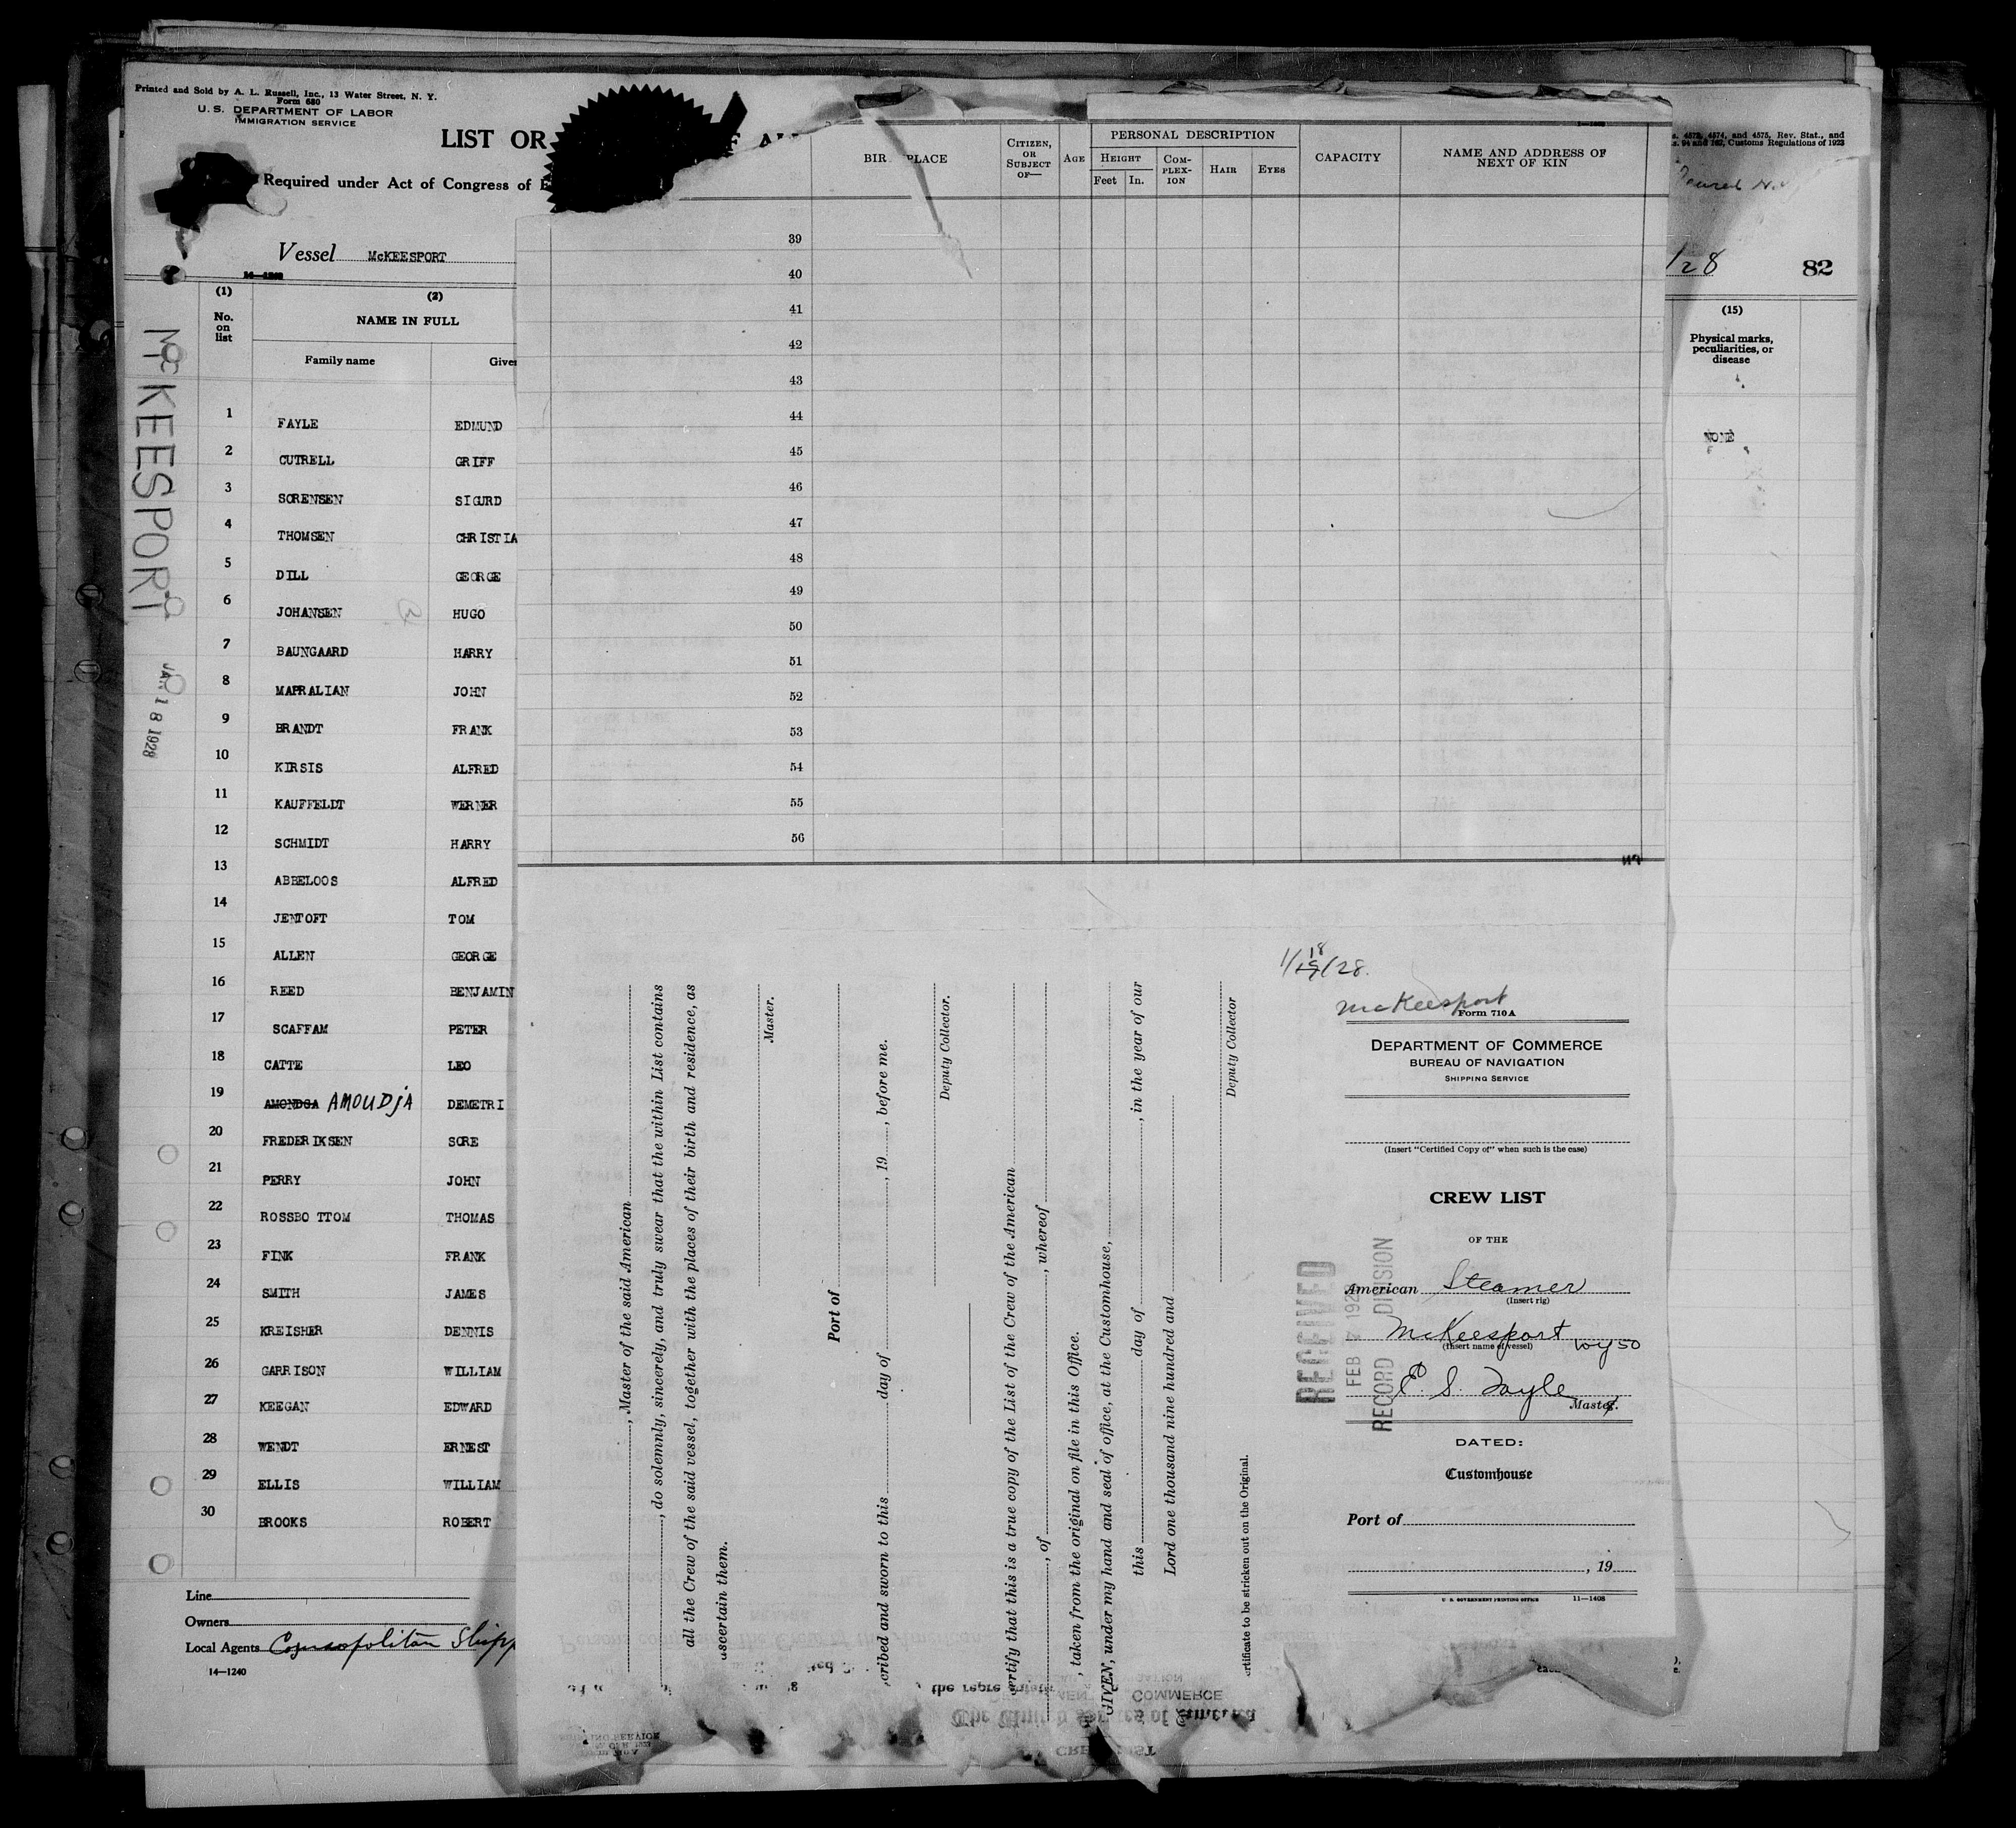 Printed and Sold by A. L. Russell, Inc., 13 Water Street, N. Y.
Form 680
U. S. DEPARTMENT OF LABOR
IMMIGRATION SERVICE
LIST OR
Required under Act of Congress of
Vessel McKEESPORT
14—1240
(1)
No. on list
(2)
NAME IN FULL
Family name
1 FAYLE EDMUND
2 CUTRELL GRIFF
3 SORENSEN SIGURD
4 THOMSEN CHRISTIA
5 DILL GEORGE
6 JOHANSEN HUGO
7 BAUNGAARD HARRY
8 MAPRALIAN JOHN
9 BRANDT FRANK
10 KIRSIS ALFRED
11 KAUFFELDT WERNER
12 SCHMIDT HARRY
13 ABBELOOS ALFRED
14 JENTOFT TOM
15 ALLEN GEORGE
16 REED BENJAMIN
17 SCAFFAM PETER
18 CATTE LEO
19 AMONDGA AMOUDJA DEMETRI
20 FREDERIKSEN SORE
21 PERRY JOHN
22 ROSSBOTTOM THOMAS
23 FINK FRANK
24 SMITH JAMES
25 KREISHER DENNIS
26 GARRISON WILLIAM
27 KEEGAN EDWARD
28 WENDT ERNEST
29 ELLIS WILLIAM
30 BROOKS ROBERT
Line
Owners
Local Agents Cosmopolitan Shipp
14—1240
McKEESPORT
JAN 18 1928
BIR PLACE
CITIZEN, OR SUBJECT OF—
AGE
PERSONAL DESCRIPTION
HEIGHT
Feet In.
COM-PLEX-ION
HAIR
EYES
CAPACITY
NAME AND ADDRESS OF NEXT OF KIN
39
40
41
42
43
44
45
46
47
48
49
50
51
52
53
54
55
56
, Master of the said American
, do solemnly, sincerely, and truly swear that the within List contains
all the Crew of the said vessel, together with the places of their birth and residence, as
ascertain them.
Master.
Port of
cribed and sworn to this day of , 19 , before me.
Deputy Collector.
ertify that this is a true copy of the List of the Crew of the American
, of , whereof
, taken from the original on file in this Office.
GIVEN, under my hand and seal of office, at the Customhouse,
this day of , in the year of our
Lord one thousand nine hundred and
Deputy Collector
rtificate to be stricken out on the Original.
1/18/28.
McKeesport
Form 710A
DEPARTMENT OF COMMERCE
BUREAU OF NAVIGATION
SHIPPING SERVICE
(Insert "Certified Copy of" when such is the case)
CREW LIST
OF THE
American Steamer
(Insert rig)
McKeesport
(Insert name of vessel)
E. S. Fayle
Master.
DATED:
Customhouse
Port of
, 19
U. S. GOVERNMENT PRINTING OFFICE 11—1408
RECEIVED
FEB
RECORD DIVISION
s. 4573, 4574, and 4575, Rev. Stat., and
s. 94 and 162, Customs Regulations of 1923
/28
82
(15)
Physical marks, peculiarities, or disease
NONE